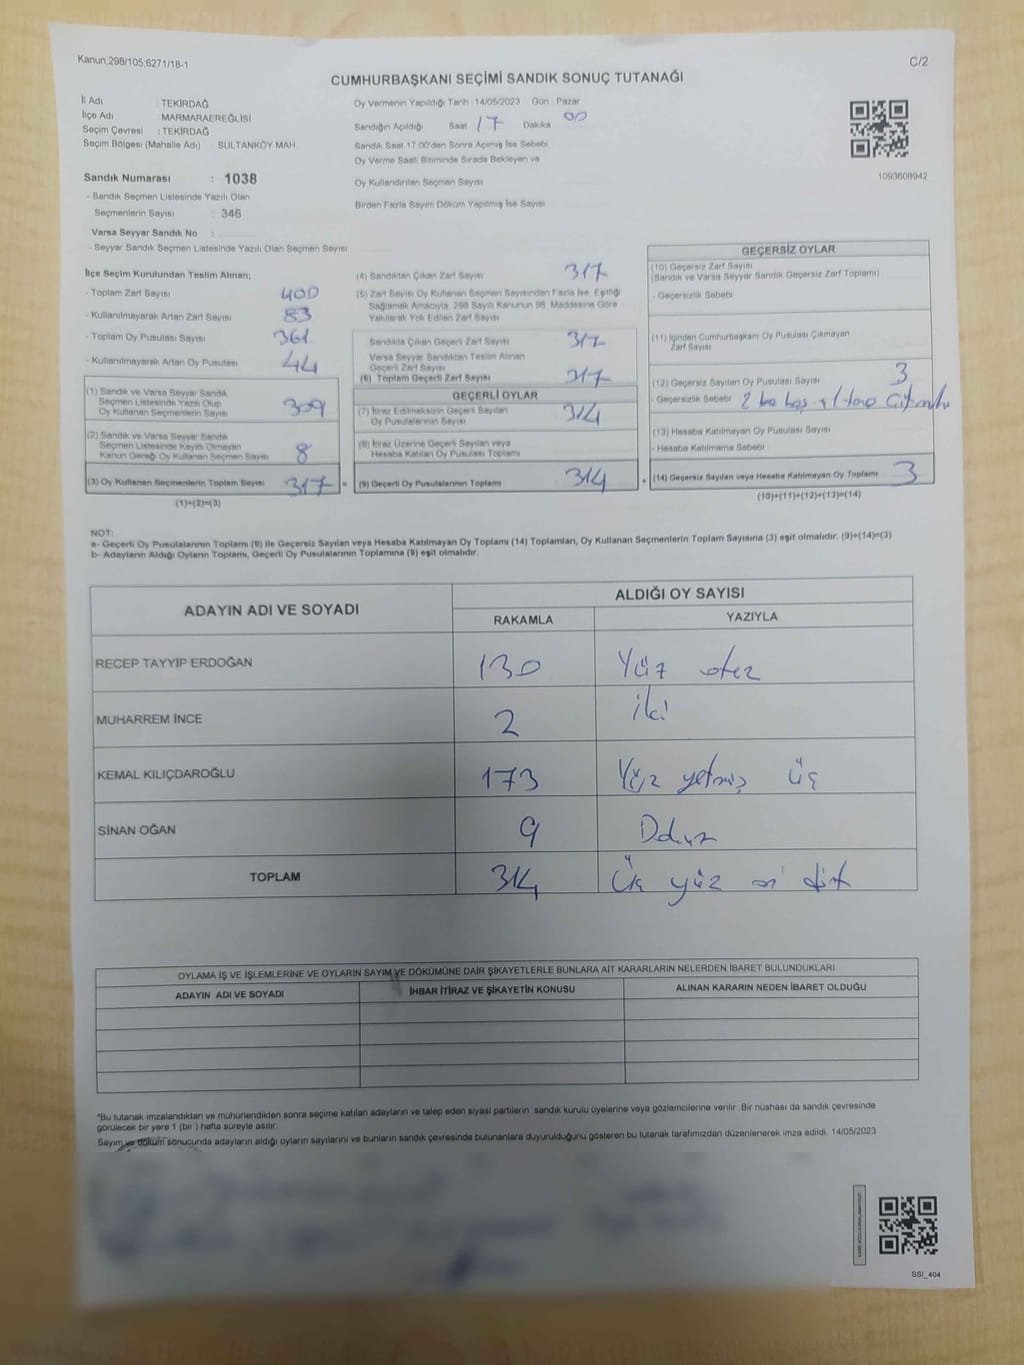 Kanun;298/105;6271/18-1
C/2
CUMHURBAŞKANI SEÇİMİ SANDIK SONUÇ TUTANAĞI
İl Adı : TEKİRDAĞ
İlçe Adı : MARMARAEREĞLİSİ
Seçim Çevresi : TEKİRDAĞ
Seçim Bölgesi (Mahalle Adı) : SULTANKÖY MAH.
Sandık Numarası : 1038
- Sandık Seçmen Listesinde Yazılı Olan
Seçmenlerin Sayısı : 346
Varsa Seyyar Sandık No :
- Seyyar Sandık Seçmen Listesinde Yazılı Olan Seçmen Sayısı
Oy Vermenin Yapıldığı Tarih : 14/05/2023 Gün : Pazar
Sandığın Açıldığı Saat 17 Dakika 00
Sandık Saat 17.00'den Sonra Açılmış İse Sebebi
Oy Verme Saati Bitiminde Sırada Bekleyen ve
Oy Kullandırılan Seçmen Sayısı
Birden Fazla Sayım Döküm Yapılmış İse Sayısı
1093606942
İlçe Seçim Kurulundan Teslim Alınan;
- Toplam Zarf Sayısı 400
- Kullanılmayarak Artan Zarf Sayısı 83
- Toplam Oy Pusulası Sayısı 361
- Kullanılmayarak Artan Oy Pusulası 44
(1) Sandık ve Varsa Seyyar Sandık
Seçmen Listesinde Yazılı Olup
Oy Kullanan Seçmenlerin Sayısı 309
(2) Sandık ve Varsa Seyyar Sandık
Seçmen Listesinde Kayıtlı Olmayan
Kanun Gereği Oy Kullanan Seçmen Sayısı 8
(3) Oy Kullanan Seçmenlerin Toplam Sayısı 317 =
(1)+(2)=(3)
(4) Sandıktan Çıkan Zarf Sayısı 317
(5) Zarf Sayısı Oy Kullanan Seçmen Sayısından Fazla İse, Eşitliği
Sağlamak Amacıyla, 298 Sayılı Kanunun 98. Maddesine Göre
Yakılarak Yok Edilen Zarf Sayısı
Sandıkta Çıkan Geçerli Zarf Sayısı 317
Varsa Seyyar Sandıktan Teslim Alınan
Geçerli Zarf Sayısı
(6) Toplam Geçerli Zarf Sayısı 317
GEÇERLİ OYLAR
(7) İtiraz Edilmeksizin Geçerli Sayılan
Oy Pusulalarının Sayısı 314
(8) İtiraz Üzerine Geçerli Sayılan veya
Hesaba Katılan Oy Pusulası Toplamı
(9) Geçerli Oy Pusulalarının Toplamı 314 +
GEÇERSİZ OYLAR
(10) Geçersiz Zarf Sayısı
(Sandık ve Varsa Seyyar Sandık Geçersiz Zarf Toplamı)
- Geçersizlik Sebebi
(11) İçinden Cumhurbaşkanı Oy Pusulası Çıkmayan
Zarf Sayısı
(12) Geçersiz Sayılan Oy Pusulası Sayısı 3
- Geçersizlik Sebebi 2 boş
(13) Hesaba Katılmayan Oy Pusulası Sayısı
- Hesaba Katılmama Sebebi
(14) Geçersiz Sayılan veya Hesaba Katılmayan Oy Toplamı 3
(10)+(11)+(12)+(13)=(14)
NOT:
a- Geçerli Oy Pusulalarının Toplamı (9) ile Geçersiz Sayılan veya Hesaba Katılmayan Oy Toplamı (14) Toplamları, Oy Kullanan Seçmenlerin Toplam Sayısına (3) eşit olmalıdır. (9)+(14)=(3)
b- Adayların Aldığı Oyların Toplamı, Geçerli Oy Pusulalarının Toplamına (9) eşit olmalıdır.
ADAYIN ADI VE SOYADI
ALDIĞI OY SAYISI
RAKAMLA YAZIYLA
RECEP TAYYİP ERDOĞAN 130 Yüz otuz
MUHARREM İNCE 2 iki
KEMAL KILIÇDAROĞLU 173 Yüz yetmiş üç
SİNAN OĞAN 9 Dokuz
TOPLAM 314 Üç yüz on dört
OYLAMA İŞ VE İŞLEMLERİNE VE OYLARIN SAYIM VE DÖKÜMÜNE DAİR ŞİKAYETLERLE BUNLARA AİT KARARLARIN NELERDEN İBARET BULUNDUKLARI
ADAYIN ADI VE SOYADI İHBAR İTİRAZ VE ŞİKAYETİN KONUSU ALINAN KARARIN NEDEN İBARET OLDUĞU
*Bu tutanak imzalandıktan ve mühürlendikten sonra seçime katılan adayların ve talep eden siyasi partilerin sandık kurulu üyelerine veya gözlemcilerine verilir. Bir nüshası da sandık çevresinde
görülecek bir yere 1 (bir ) hafta süreyle asılır.
Sayım ve döküm sonucunda adayların aldığı oyların sayılarını ve bunların sandık çevresinde bulunanlara duyurulduğunu gösteren bu tutanak tarafımızdan düzenlenerek imza edildi. 14/05/2023
SSI_404